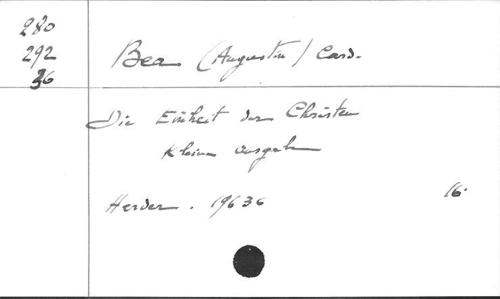 280
292
36
Bea (Augustin) Card.
Die Einheit der Christen
Kleine Ausgabe
Herder. 1963 16.